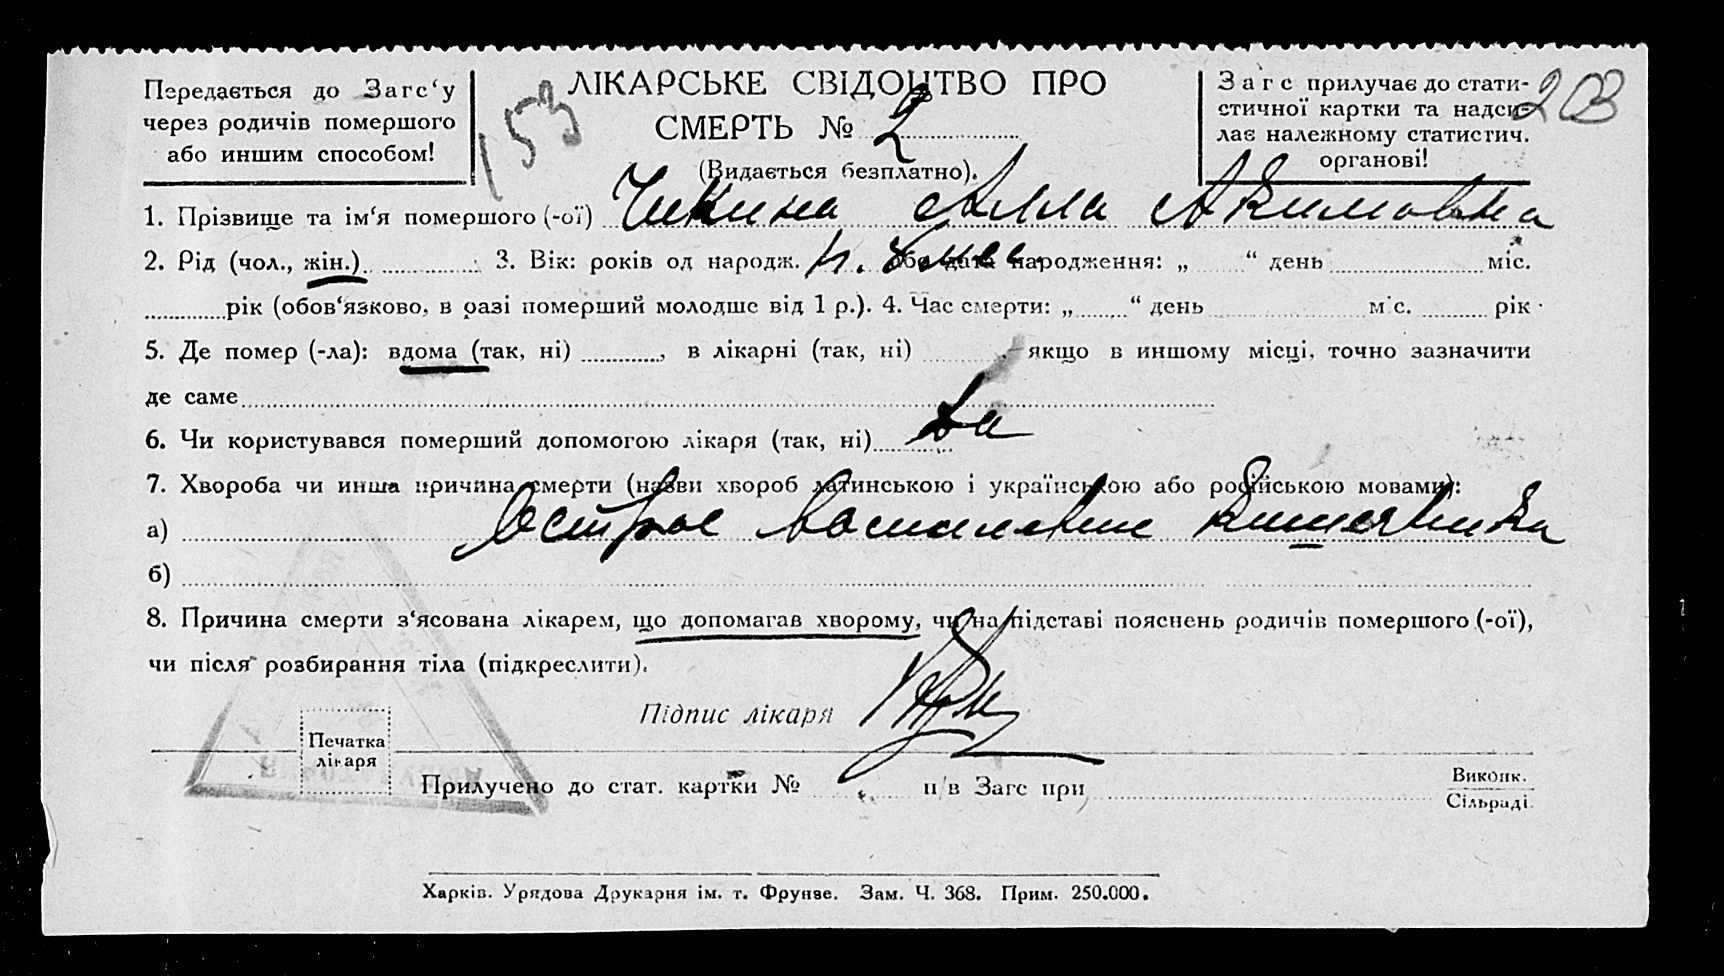 Передається до Загс‘у
через родичів помершого
або иншим способом!
153
ЛІКАРСЬКЕ СВІДОЦТВО ПРО
СМЕРТЬ № 2
(Видається безплатно).
Загс прилучає до стати-
стичної картки та надси-
лає належному статистич.
органові!
203
1. Прізвище та ім‘я помершого (-ої) Чикина Алла Акимовна
2. Рід (чол., жін.) 3. Вік: років од народж. або дата народження: „ “ день міс.
рік (обов‘язково, в разі померший молодше від 1 р.). 4. Час смерти: „ “ день міс. рік
5. Де помер (-ла): вдома (так, ні) , в лікарні (так, ні) , якщо в иншому місці, точно зазначити
де саме
6. Чи користувався померший допомогою лікаря (так, ні) да
7. Хвороба чи инша причина смерти (назви хвороб латинською і українською або російською мовами):
а) Острое воспаление кишечника
б)
8. Причина смерти з‘ясована лікарем, що допомагав хворому, чи на підставі пояснень родичів помершого (-ої),
чи після розбирання тіла (підкреслити).
Підпис лікаря
Печатка
лікаря
Прилучено до стат. картки № п/в Загс при
Виконк.
Сільраді
Харків. Урядова Друкарня ім. т. Фрунзе. Зам. Ч. 368. Прим. 250.000.